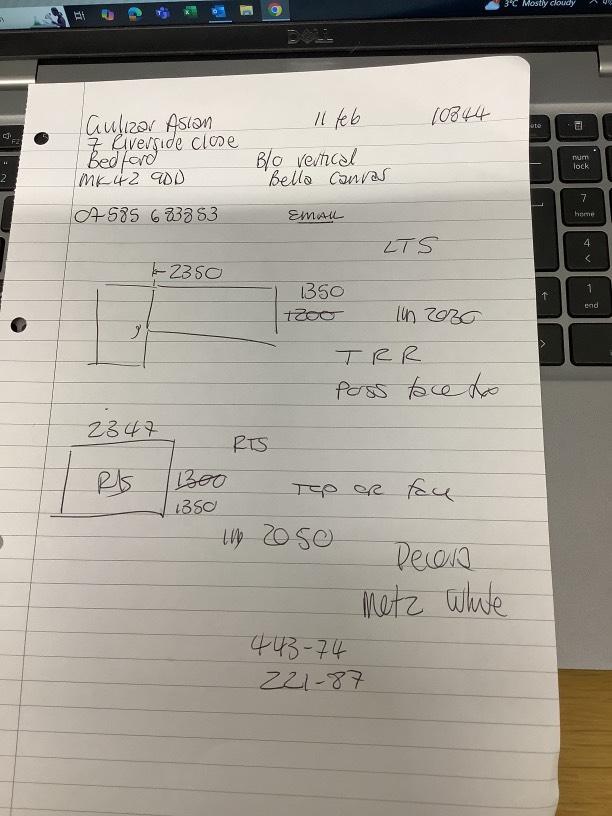 3°C Mostly cloudy
DELL
Gulizar Aslan 11 feb 10844
7 Riverside close
Bedford B/O vertical
MK42 9DD Bella Canvas
07585 683853 EMAIL
LTS
2350
1350
1200 Un 2030
TRR
Poss face fix
2347
RTS
R/S 1300 Top OR face
1350
Un 2050
Decora
Metz White
443-74
221-87
num lock
7 home
4
1 end